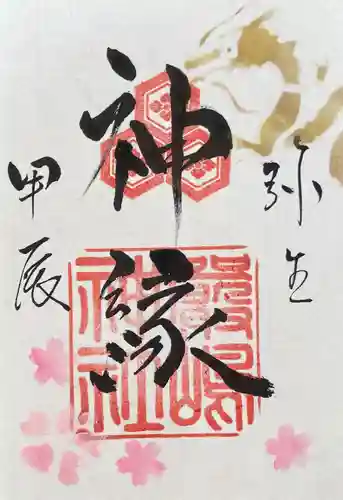 弥生
神縁
甲辰
嚴島神社